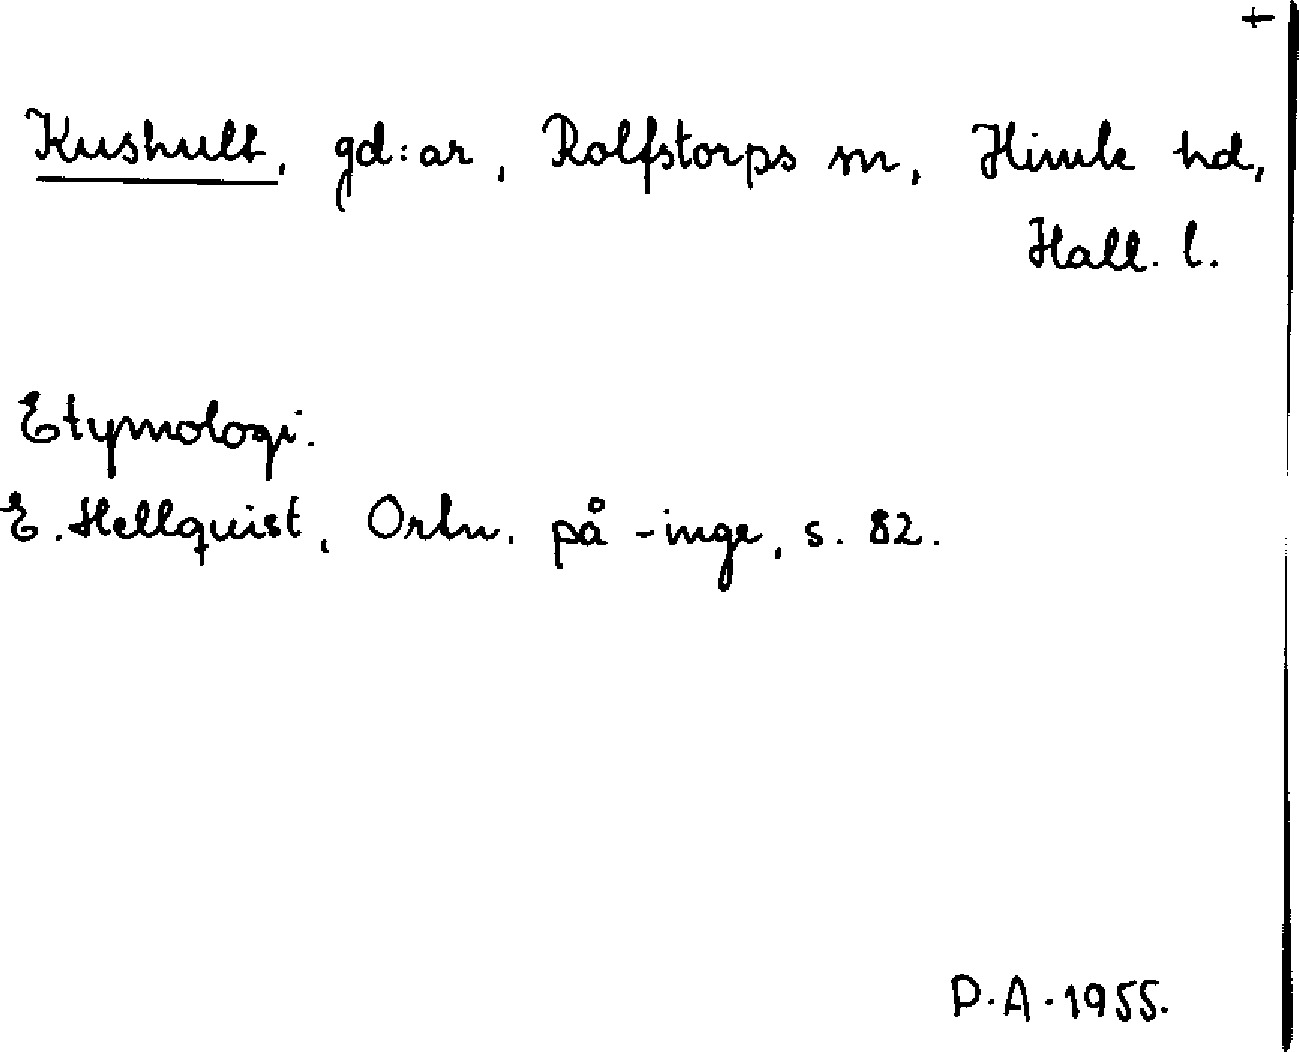 +
Kushult, gd:ar, Rolfstorps sn, Himle hd,
Hall. l.
Etymologi.
E. Hellquist, Ortn. på -inge, s. 82.
P.A. 1955.